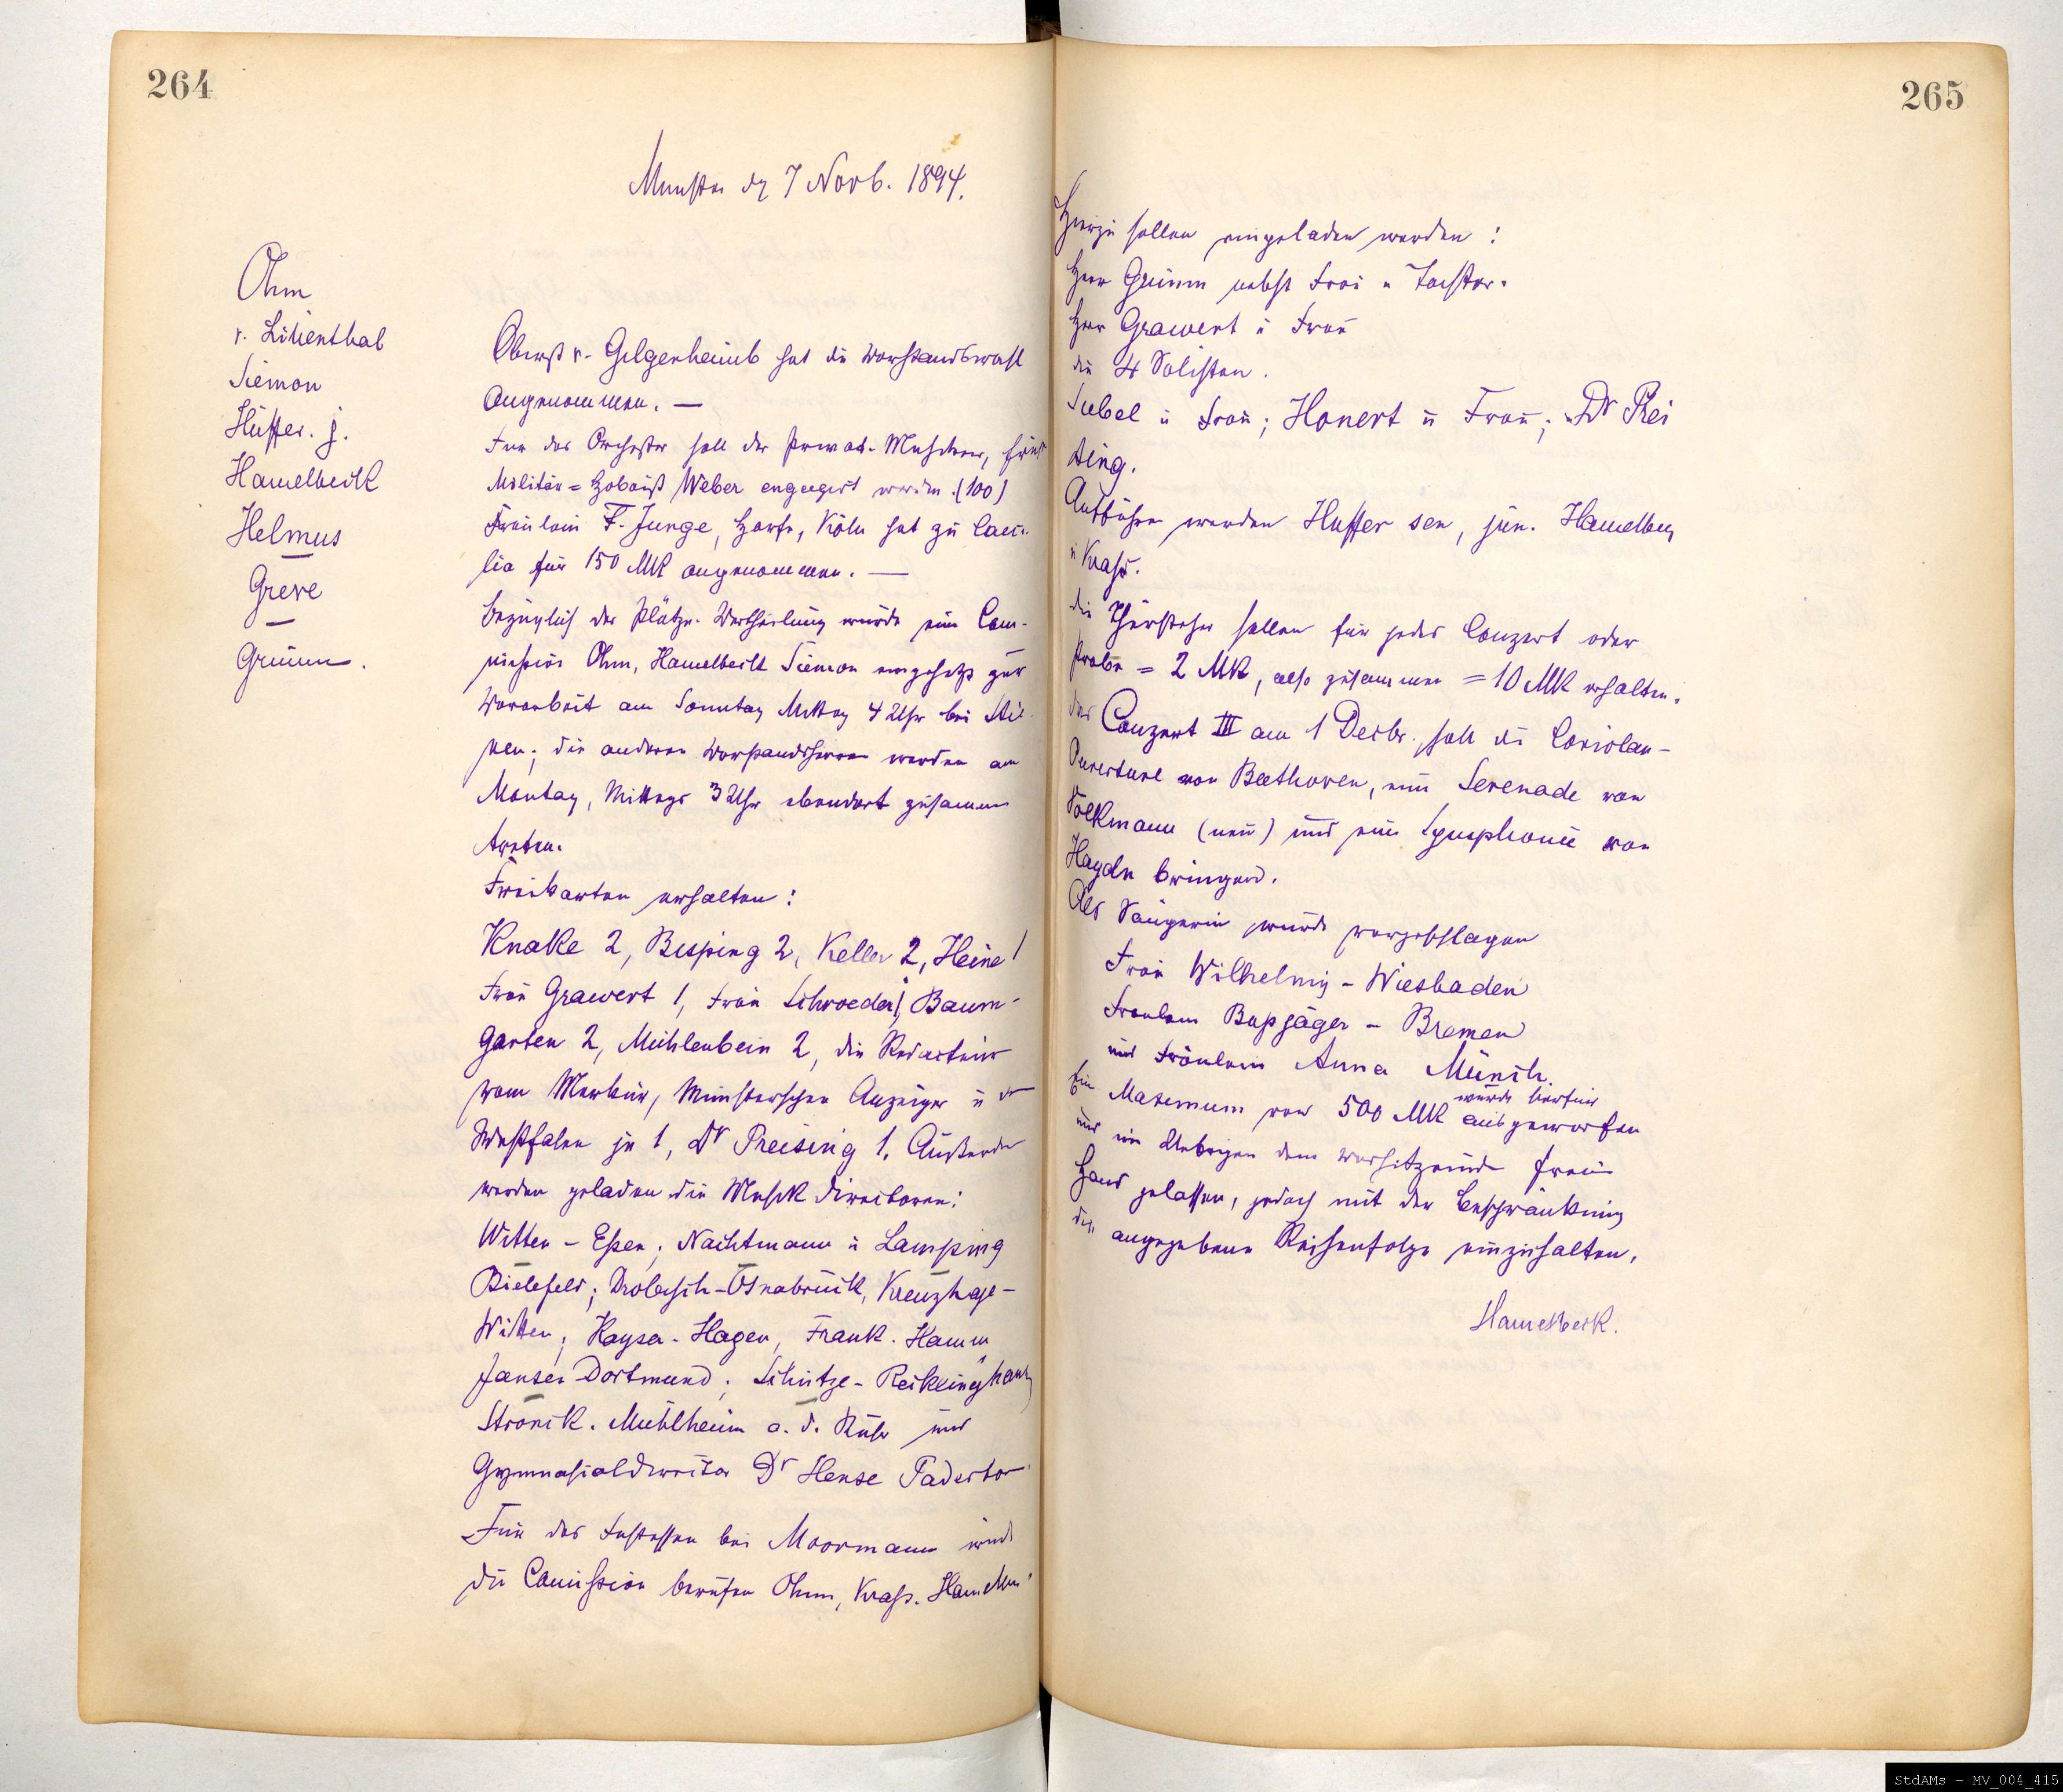 264
Münster dz 7 Novb. 1894.
Ohm
v. Lilienthal
Siemon
Hüffer. j.
Hamelbeck
Helmus
Greve
Grimm.
Oberst v. Gilgenheimb hat die Vorstandswahl
angenommen. —
Für das Orchester soll der Privat-Musiker, früh
Militär=Hoboist Weber engagirt werden. (100)
Fräulein F. Junge, Harfe, Köln hat zu Caeci-
lia für 150 MK angenommen. —
Bezüglich der Plätze-Vertheilung wurde eine Com-
mission Ohm, Hamelbeck Siemon eingesetzt zur
Vorarbeit am Sonntag Mittag 4 Uhr bei Stie-
nen; die anderen Vorstandsherren werden am
Montag, Mittags 3 Uhr ebendort zusammen
treten.
Freikarten erhalten:
Knake 2, Bisping 2, Keller 2, Heine 1
Frau Grawert 1, Frau Schroeder 1, Baum-
garten 2, Mühlenbein 2, die Redacteure
vom Merkur, Münsterschen Anzeiger u der
Westfalen je 1, Dr Preising 1. Außerdem
werden geladen die Musik Directoren:
Witten - Essen; Nachtmann u Lamping
Bielefeld; Drobisch-Osnabrück, Kreuzhage-
Witten; Kaysa - Hagen, Frank. Hamm
Janssen Dortmund; Schütze - Recklinghaus
Stronck. Mühlheim a. d. Ruhr und
Gymnasialdirector Dr Hense Paderbo
Für das Festessen bei Moormann wird
die Comission berufen Ohm, Krass. Hamelbe
265
Hierzu sollen eingeladen werden:
Herr Grimm nebst Frau u Tochter.
Herr Grawert u Frau
die 4 Solisten.
Subel u Frau; Honert u Frau; Dr Prei
sing.
Anführer werden Hüffer sen, jün. Hamelbeck
u Krass.
Die Thürsteher sollen für jedes Conzert oder
Probe = 2 MK, also zusammen = 10 MK erhalten.
Das Conzert III am 1 Decbr. soll die Coriolan-
Ouverture von Beethoven, eine Serenade von
Volkmann (neu) und eine Symphonie von
Haydn bringen.
Als Sängerin wurde vorgeschlagen
Frau Wilhelmj - Wiesbaden
Fraulein Busjäger - Bremen
und Fräulein Anna Münch.
Ein Maximum von 500 MK wurde hierfür ausgeworfen
und im Uebrigen dem Vorsitzende freie
Hand gelassen, jedoch mit der Beschränkung
die angegebene Reihenfolge einzuhalten.
Hamelbeck.
StdAMs - MV_004_415